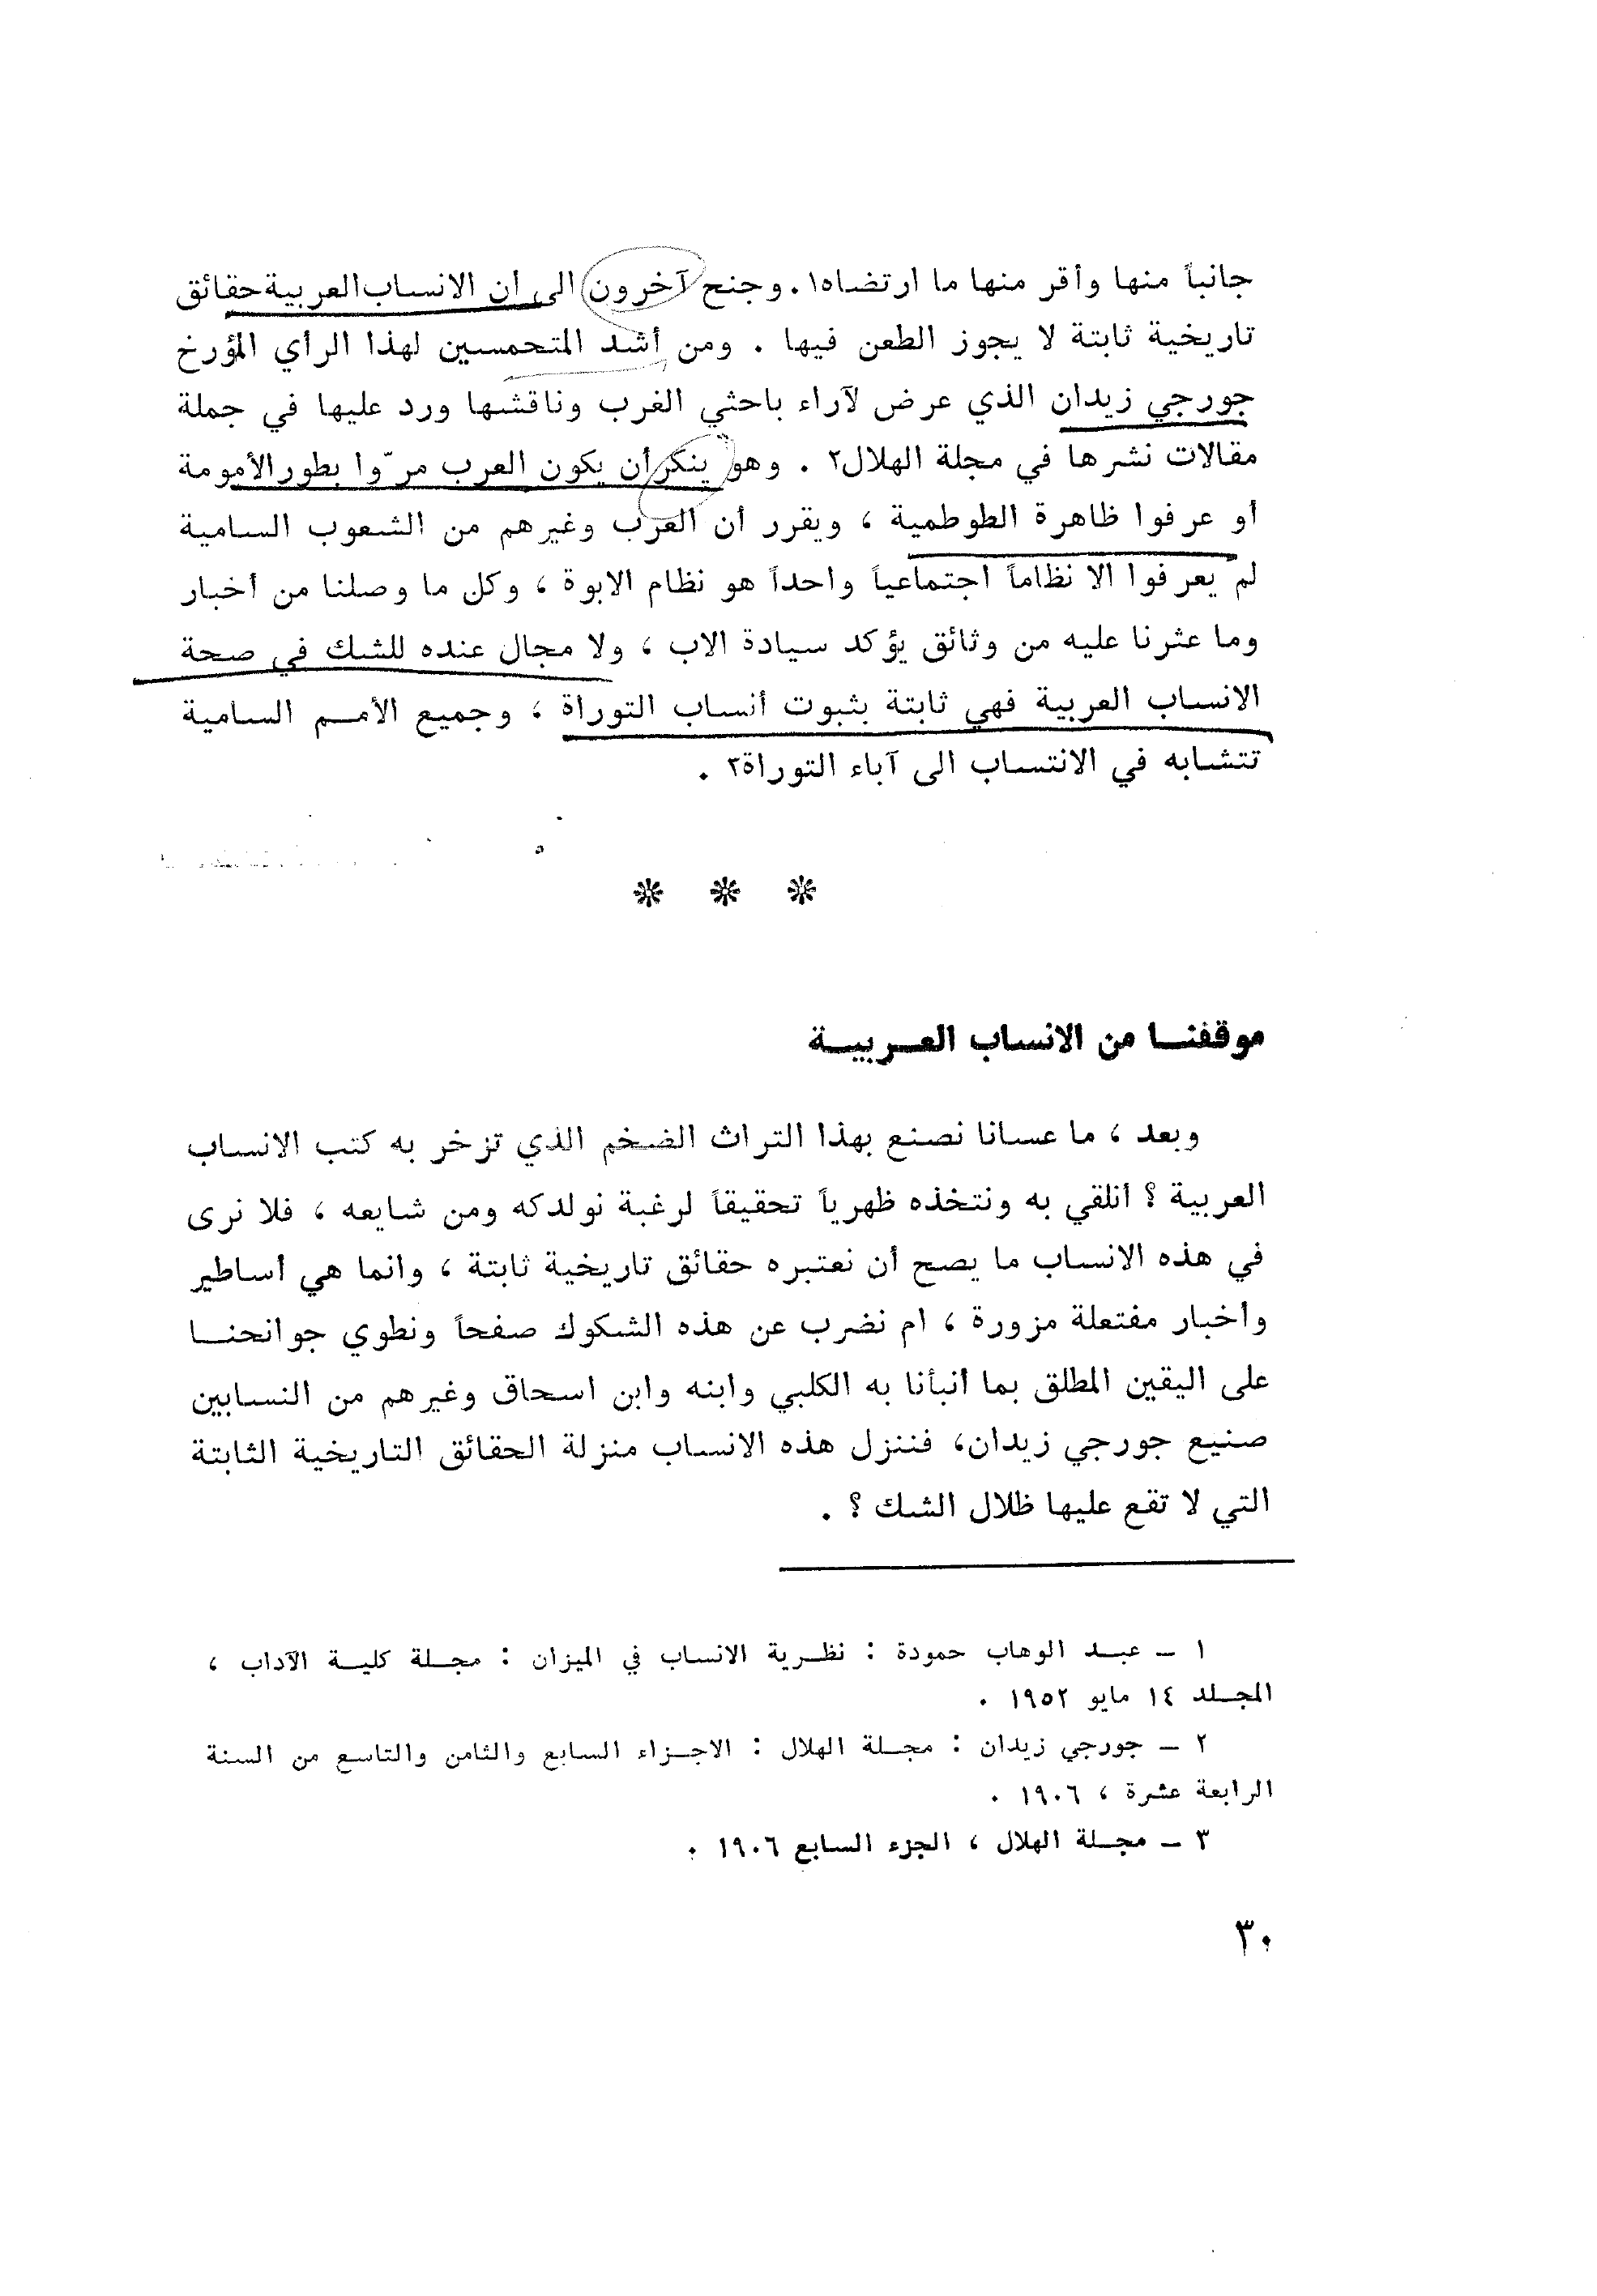 جانباً منها وأقر منها ما ارتضاه١ . وجنح آخرون الى أن الانساب العربية حقائق
تاريخية ثابتة لا يجوز الطعن فيها . ومن أشد المتحمسين لهذا الرأي المؤرخ
جورجي زيدان الذي عرض لآراء باحثي الغرب وناقشها ورد عليها في جملة
مقالات نشرها في مجلة الهلال٢ . وهو ينكر أن يكون العرب مرّوا بطور الأمومة
أو عرفوا ظاهرة الطوطمية ، ويقرر أن العرب وغيرهم من الشعوب السامية
لم يعرفوا الا نظاماً اجتماعياً واحداً هو نظام الابوة ، وكل ما وصلنا من أخبار
وما عثرنا عليه من وثائق يؤكد سيادة الاب ، ولا مجال عنده للشك في صحة
الانساب العربية فهي ثابتة بثبوت أنساب التوراة ، وجميع الأمم السامية
تتشابه في الانتساب الى آباء التوراة٣ .
* * *
موقفنا من الانساب العربية
وبعد ، ما عسانا نصنع بهذا التراث الضخم الذي تزخر به كتب الانساب
العربية ؟ أنلقي به ونتخذه ظهرياً تحقيقاً لرغبة نولدكه ومن شايعه ، فلا نرى
في هذه الانساب ما يصح أن نعتبره حقائق تاريخية ثابتة ، وانما هي أساطير
وأخبار مفتعلة مزورة ، ام نضرب عن هذه الشكوك صفحاً ونطوي جوانحنا
على اليقين المطلق بما أنبأنا به الكلبي وابنه وابن اسحاق وغيرهم من النسابين
صنيع جورجي زيدان، فننزل هذه الانساب منزلة الحقائق التاريخية الثابتة
التي لا تقع عليها ظلال الشك ؟ .
١ ــ عبد الوهاب حمودة : نظرية الانساب في الميزان : مجلة كلية الآداب ،
المجلد ١٤ مايو ١٩٥٢ .
٢ ــ جورجي زيدان : مجلة الهلال : الاجزاء السابع والثامن والتاسع من السنة
الرابعة عشرة ، ١٩٠٦ .
٣ ــ مجلة الهلال ، الجزء السابع ١٩٠٦ .
٣٠